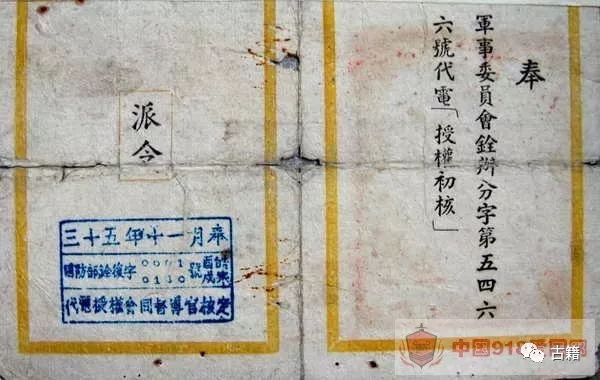 奉
軍事委員會銓辦分字第五四六
六號代電「授權初核」
派令
三十五年十一月奉
國防部銓字 號
代電授權會同督導官核定
中国918爱国网
古籍